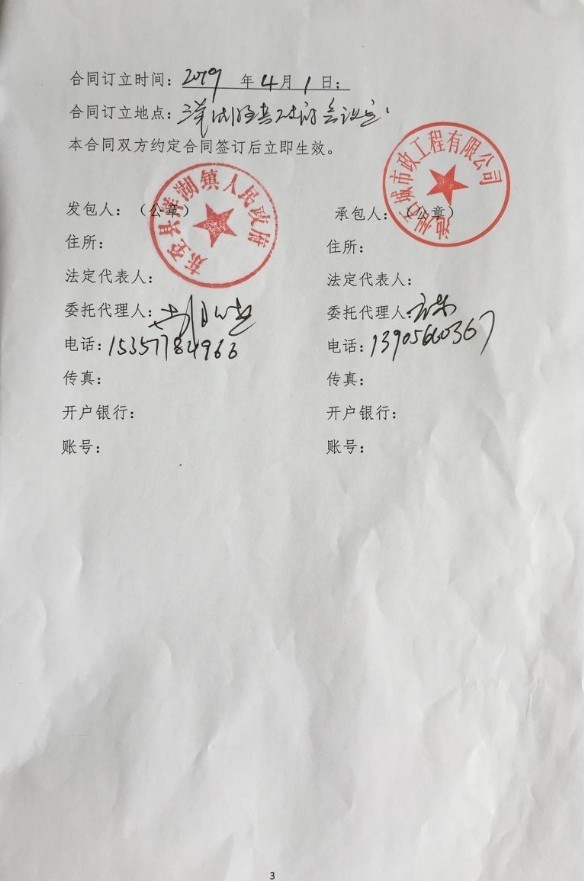 合同订立时间：2019 年 4 月 1 日；
合同订立地点：洋湖镇 会议室
本合同双方约定合同签订后立即生效。
东至县洋湖镇人民政府
池州石城市政工程有限公司
发包人：（公章）
承包人：（公章）
住所：
住所：
法定代表人：
法定代表人：
委托代理人：
委托代理人：
电话：15357784963
电话：13905660367
传真：
传真：
开户银行：
开户银行：
账号：
账号：
3